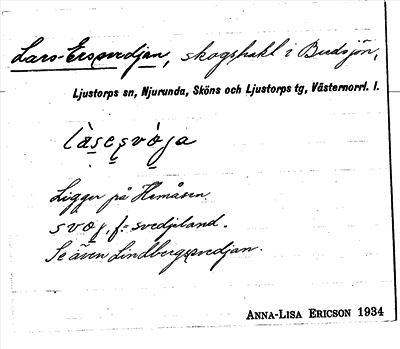 Lars-Erssvedjan, skogshakl i Budsjön,
Ljustorps sn, Njurunda, Sköns och Ljustorps tg, Västernorrl. l.
Ligger på Hemåsen.
svœj, f. = svedjeland.
Se även Lindbergssvedjan.
ANNA-LISA ERICSON 1934